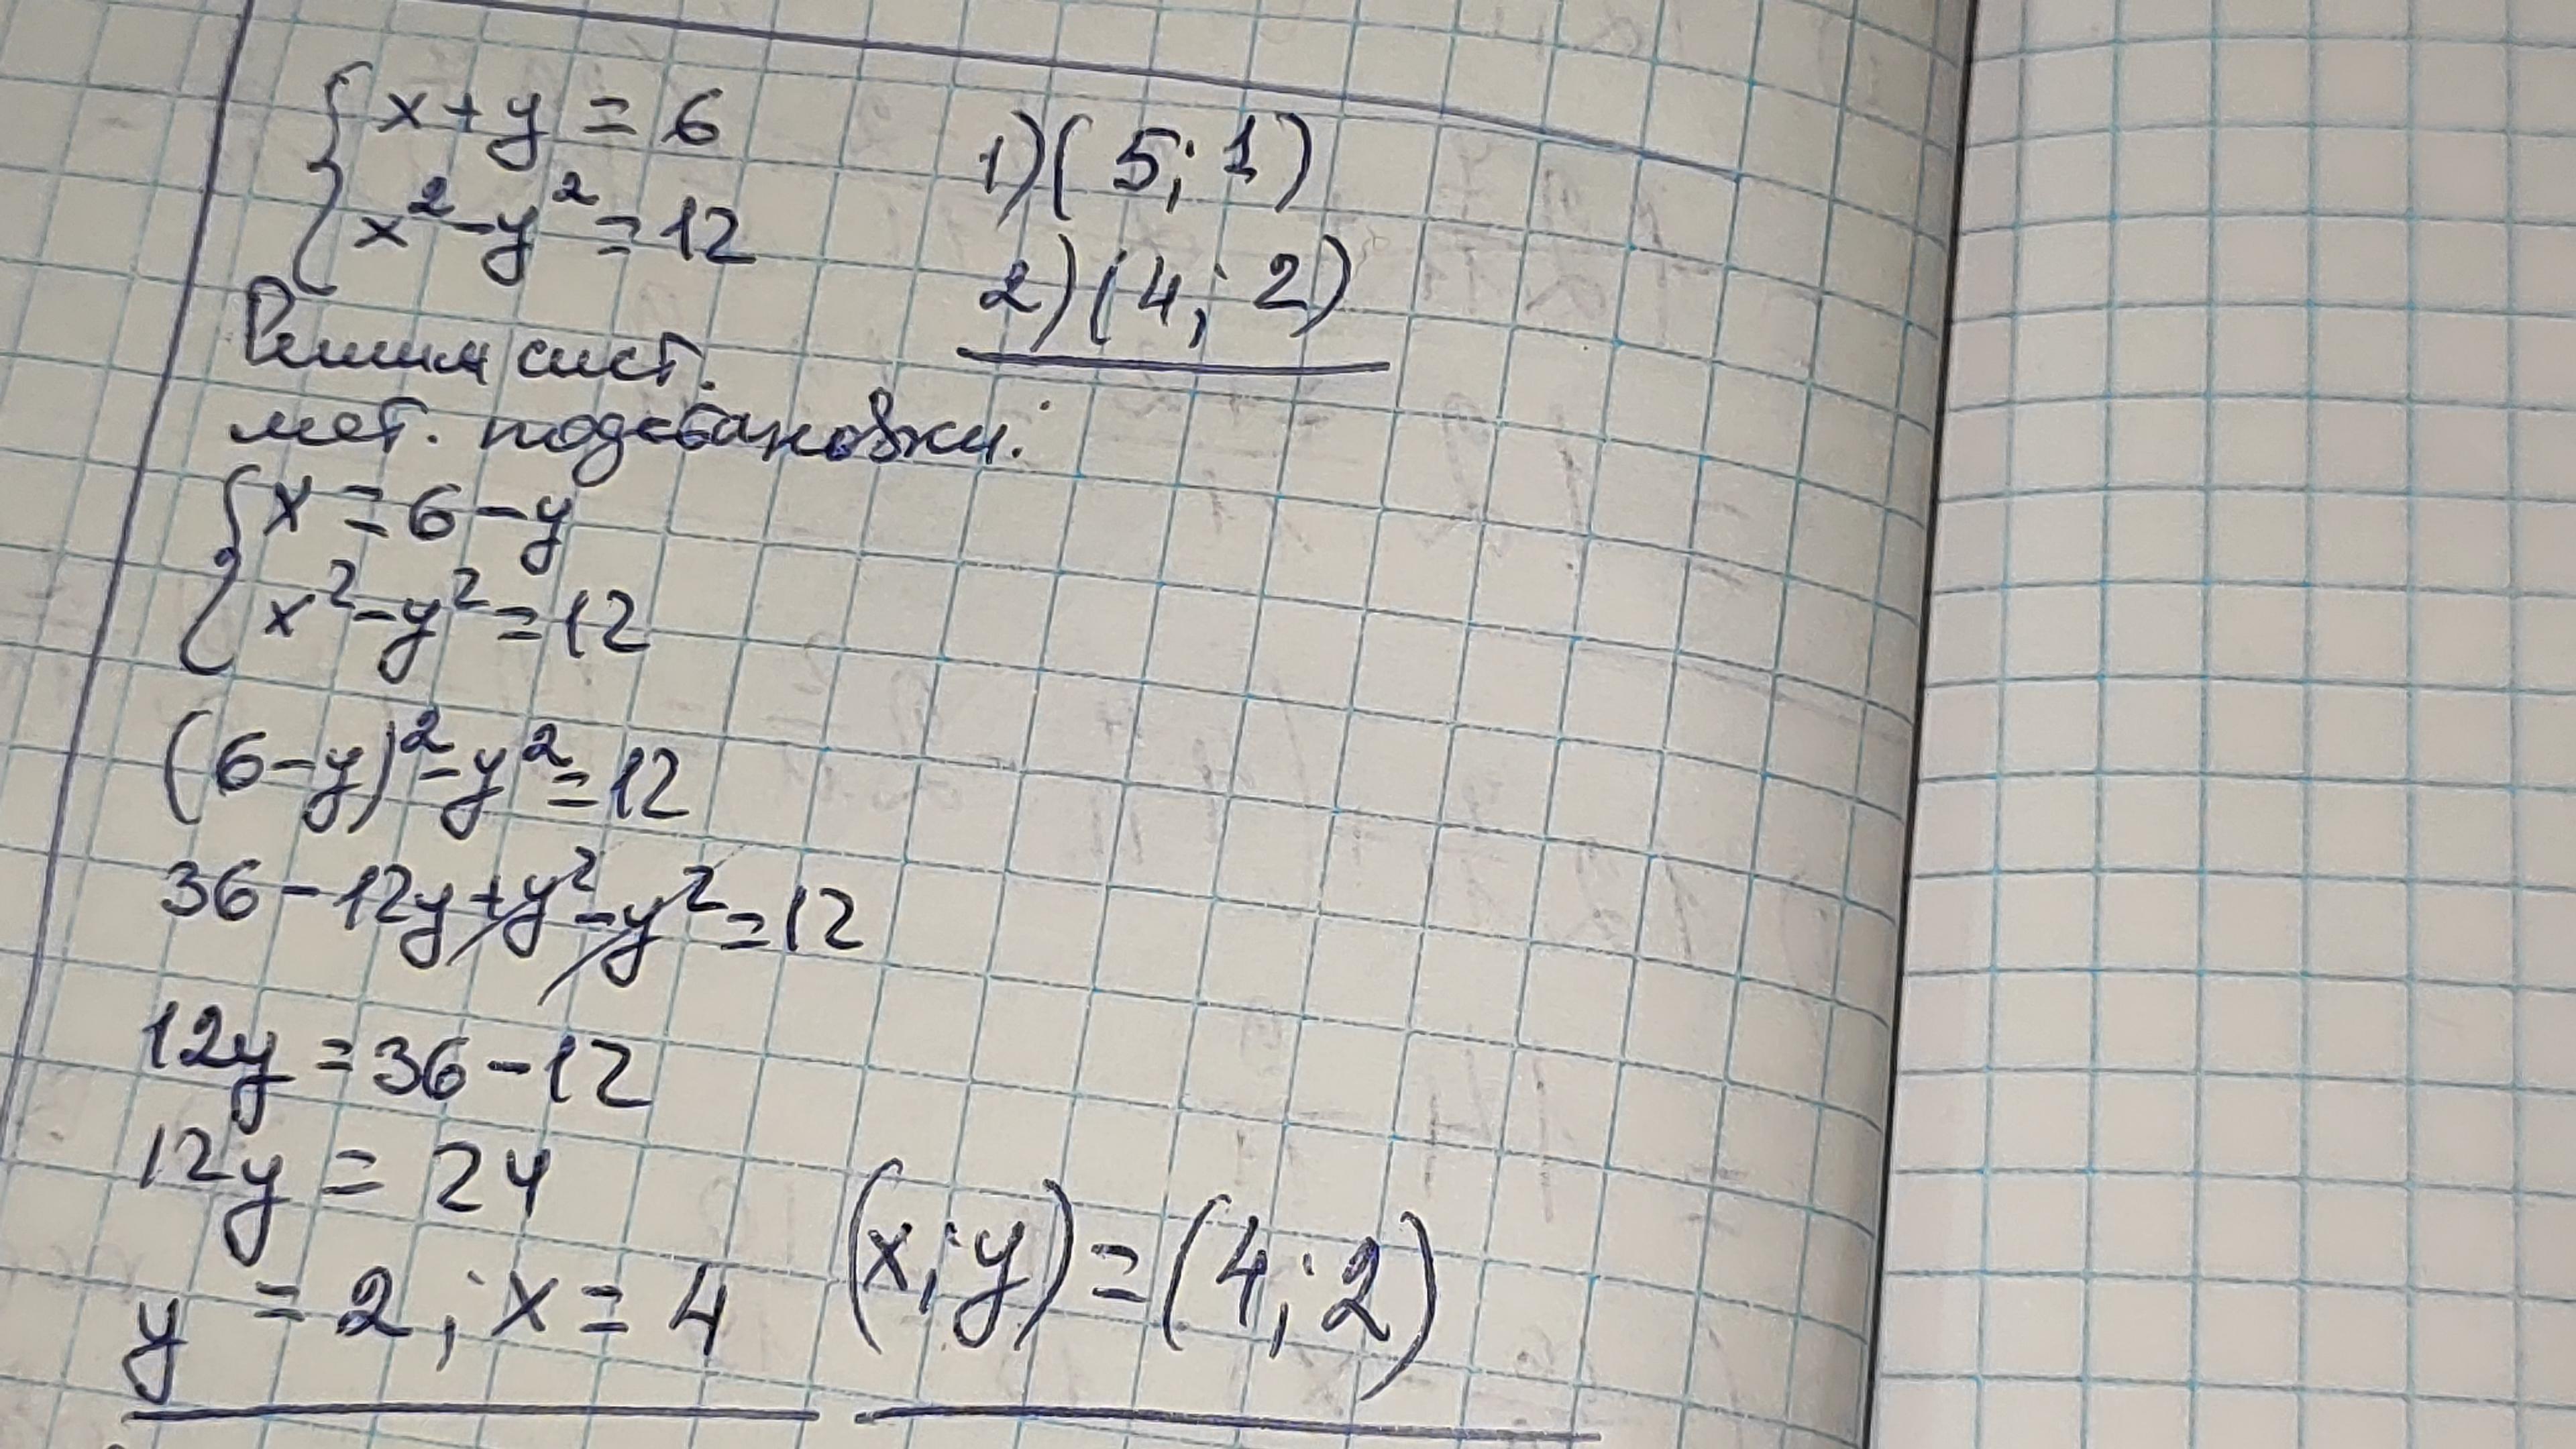 x+y = 6
x²-y² = 12
1) (5; 1)
2) (4; 2)
Решим сист.
мет. подстановки.
x = 6-y
x²-y² = 12
(6-y)²-y² = 12
36-12y+y²-y² = 12
12y = 36-12
12y = 24
y = 2; x = 4
(x; y) = (4; 2)